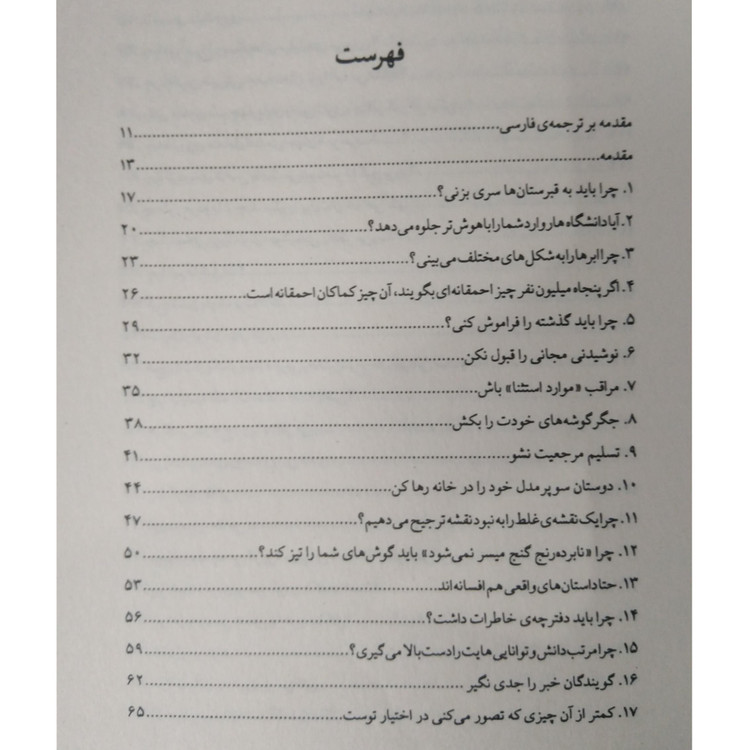 فهرست
مقدمه بر ترجمه‌ی فارسی..........۱۱
مقدمه..........۱۳
۱. چرا باید به قبرستان‌ها سری بزنی؟..........۱۷
۲. آیا دانشگاه هاروارد شما را باهوش‌تر جلوه می‌دهد؟..........۲۰
۳. چرا ابرها را به شکل‌های مختلف می‌بینی؟..........۲۳
۴. اگر پنجاه میلیون نفر چیز احمقانه‌ای بگویند، آن چیز کماکان احمقانه است..........۲۶
۵. چرا باید گذشته را فراموش کنی؟..........۲۹
۶. نوشیدنی مجانی را قبول نکن..........۳۲
۷. مراقب «موارد استثنا» باش..........۳۵
۸. جگرگوشه‌های خودت را بکش..........۳۸
۹. تسلیم مرجعیت نشو..........۴۱
۱۰. دوستان سوپر مدل خود را در خانه رها کن..........۴۴
۱۱. چرا یک نقشه‌ی غلط را به نبود نقشه ترجیح می‌دهیم؟..........۴۷
۱۲. چرا «نابرده رنج گنج میسر نمی‌شود» باید گوش‌های شما را تیز کند؟..........۵۰
۱۳. حتا داستان‌های واقعی هم افسانه‌اند..........۵۳
۱۴. چرا باید دفترچه‌ی خاطرات داشت؟..........۵۶
۱۵. چرا مرتب دانش و توانایی‌هایت را دست بالا می‌گیری؟..........۵۹
۱۶. گویندگان خبر را جدی نگیر..........۶۲
۱۷. کمتر از آن چیزی که تصور می‌کنی در اختیار توست..........۶۵